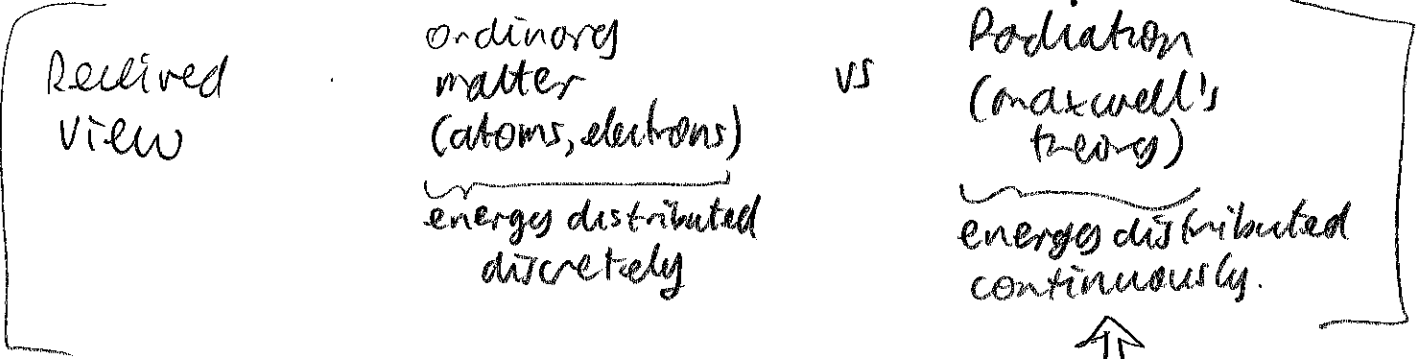 Received view
ordinary
matter
(atoms, electrons)
energy distributed
discretely
vs
Radiation
(maxwell's
theory)
energy distributed
continuously.